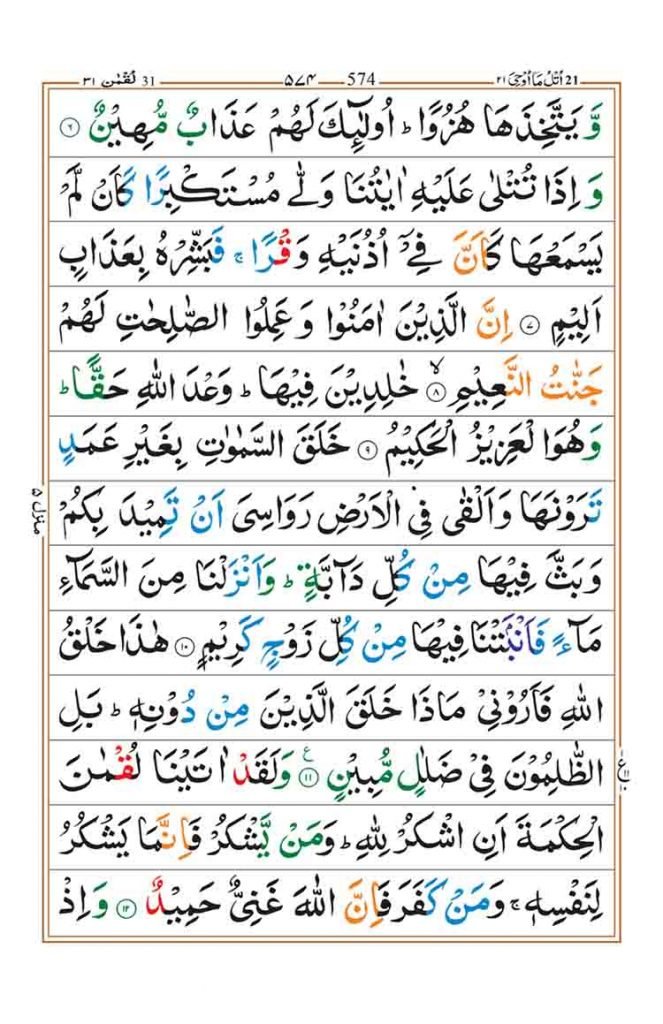 اُتْلُ مَاۤ اُوْحِیَ ۲۱ 21 574 ۵۷۴ لُقْمٰن ۳۱ 31
وَّ یَتَّخِذَهَا هُزُوًا ؕ اُولٰٓىِٕكَ لَهُمْ عَذَابٌ مُّهِیْنٌ ۶
وَ اِذَا تُتْلٰى عَلَیْهِ اٰیٰتُنَا وَلّٰى مُسْتَكْبِرًا كَاَنْ لَّمْ
یَسْمَعْهَا كَاَنَّ فِیْۤ اُذُنَیْهِ وَقْرًا ۚ فَبَشِّرْهُ بِعَذَابٍ
اَلِیْمٍ ۷ اِنَّ الَّذِیْنَ اٰمَنُوْا وَ عَمِلُوا الصّٰلِحٰتِ لَهُمْ
جَنّٰتُ النَّعِیْمِ ۸ۙ خٰلِدِیْنَ فِیْهَا ؕ وَعْدَ اللّٰهِ حَقًّا ؕ
وَهُوَ الْعَزِیْزُ الْحَكِیْمُ ۹ خَلَقَ السَّمٰوٰتِ بِغَیْرِ عَمَدٍ
تَرَوْنَهَا وَ اَلْقٰى فِی الْاَرْضِ رَوَاسِیَ اَنْ تَمِیْدَ بِكُمْ
وَ بَثَّ فِیْهَا مِنْ كُلِّ دَآبَّةٍ ؕ وَ اَنْزَلْنَا مِنَ السَّمَآءِ
مَآءً فَاَنْۢبَتْنَا فِیْهَا مِنْ كُلِّ زَوْجٍ كَرِیْمٍ ۱۰ هٰذَا خَلْقُ
اللّٰهِ فَاَرُوْنِیْ مَاذَا خَلَقَ الَّذِیْنَ مِنْ دُوْنِهٖ ؕ بَلِ
الظّٰلِمُوْنَ فِیْ ضَلٰلٍ مُّبِیْنٍ ۱۱ع وَلَقَدْ اٰتَیْنَا لُقْمٰنَ
الْحِكْمَةَ اَنِ اشْكُرْ لِلّٰهِ ؕ وَمَنْ یَّشْكُرْ فَاِنَّمَا یَشْكُرُ
لِنَفْسِهٖ ۚ وَمَنْ كَفَرَ فَاِنَّ اللّٰهَ غَنِیٌّ حَمِیْدٌ ۱۲ وَ اِذْ
منزل ۵